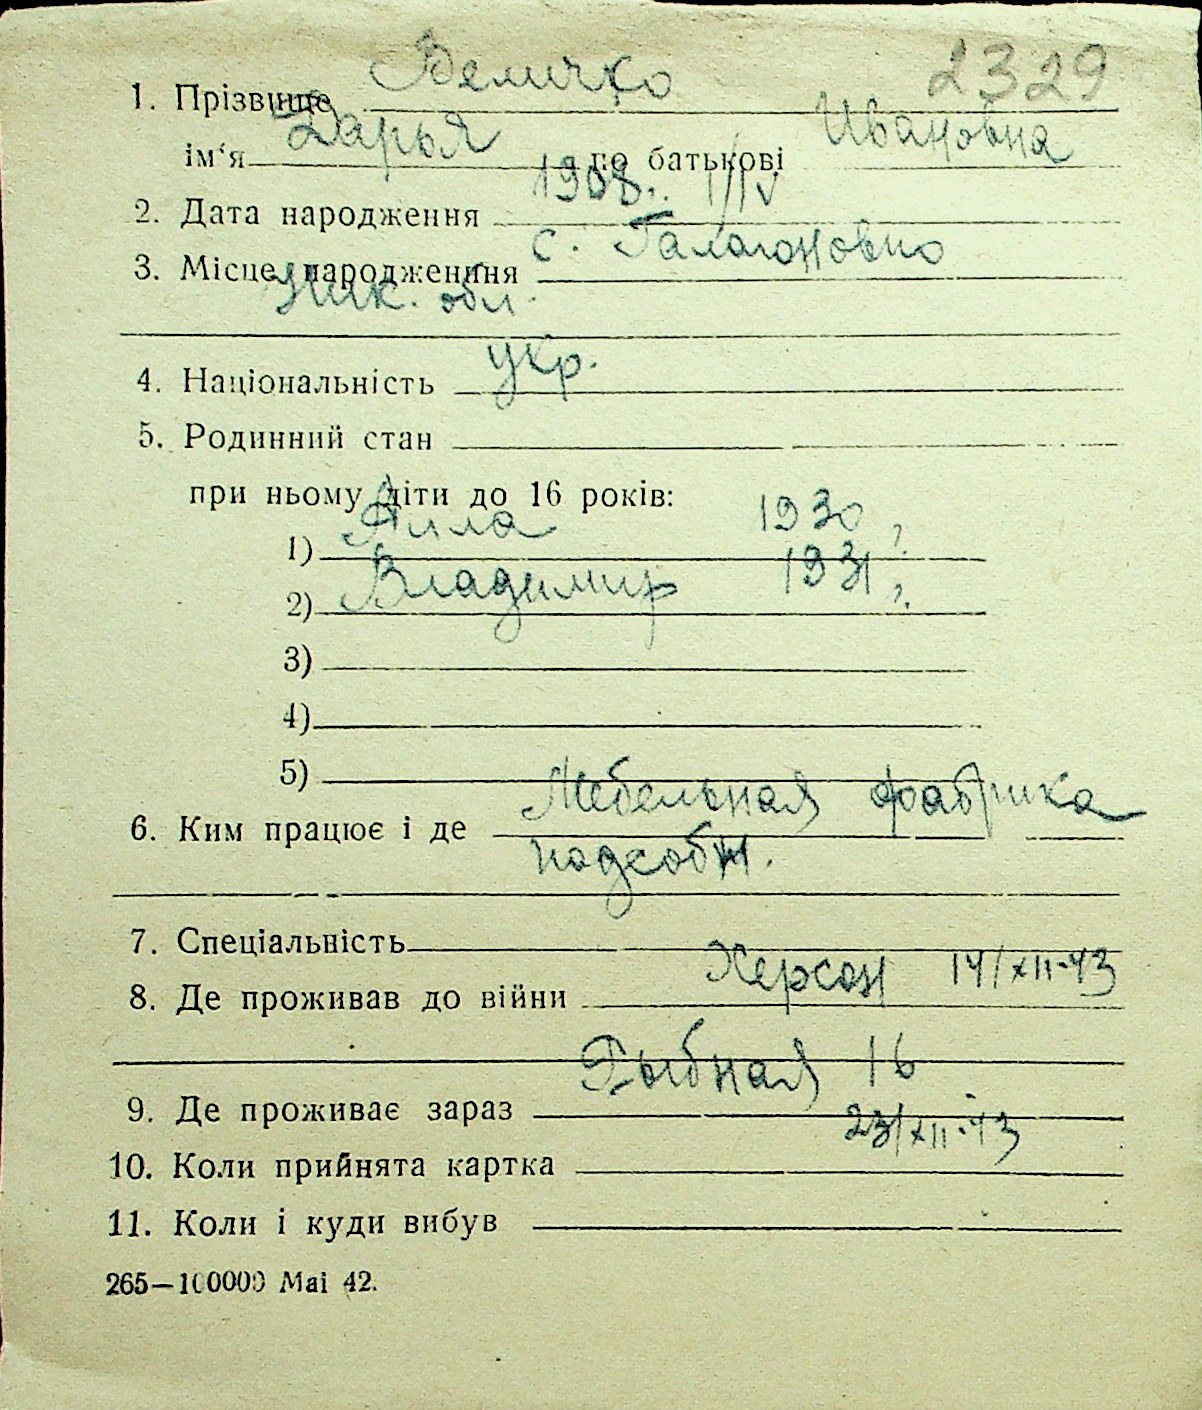 2329
1. Прізвище Величко
ім‘я Дарья по батькові Ивановна
2. Дата народження 1908. 1/IV
3. Місце народженння с. Галагановно
Ник. обл.
4. Національність укр.
5. Родинний стан
при ньому діти до 16 років:
1) Алла 1930
2) Владимир 1931
3)
4)
5)
6. Ким працює і де Мебельная фабрика
подсобн.
7. Спеціальність
8. Де проживав до війни Херсон 14/XII-43
9. Де проживає зараз Рыбная 16
23/XII-43
10. Коли прийнята картка
11. Коли і куди вибув
265—100000 Mai 42.